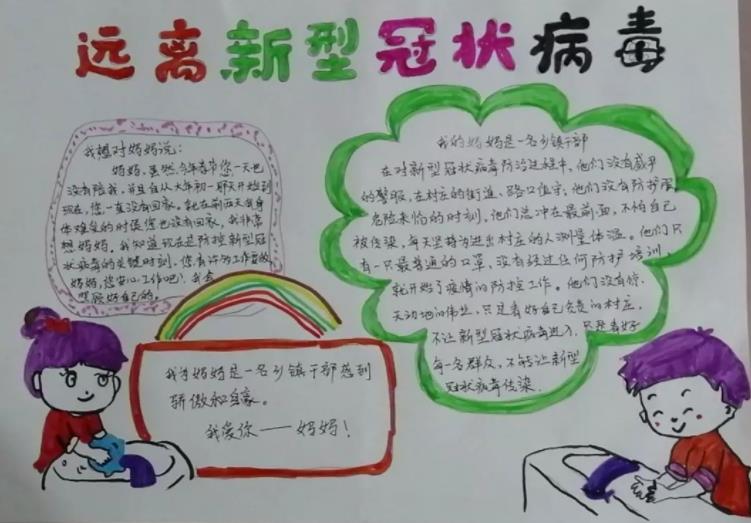 远离新型冠状病毒
我想对妈妈说：
妈妈，虽然今年春节您一天也
没有陪我，并且自从大年初一那天开始到
现在，您一直没有回家。就在前两天我身
体难受的时候您也没有回家，我非常
想妈妈，我知道现在是防控新型冠
状病毒的关键时刻，您有许多工作要做，
妈妈，您安心工作吧！我会
照顾好自己的。
我的妈妈是一名乡镇干部
在对新型冠状病毒防治过程中，他们没有威严
的警服，在村庄的街道、路口值守；他们没有防护服
危险来临的时刻，他们总冲在最前面，不怕自己
被传染，每天坚持为进出村庄的人测量体温。他们只
有一只最普通的口罩，没有经过任何防护培训，
就开始了疫情的防控工作。他们没有惊
天动地的伟业，只是看好自己负责的村庄，
不让新型冠状病毒进入，只是看好
每一名群众，不能让新型
冠状病毒传染。
我为妈妈是一名乡镇干部感到
骄傲和自豪。
我爱你——妈妈！